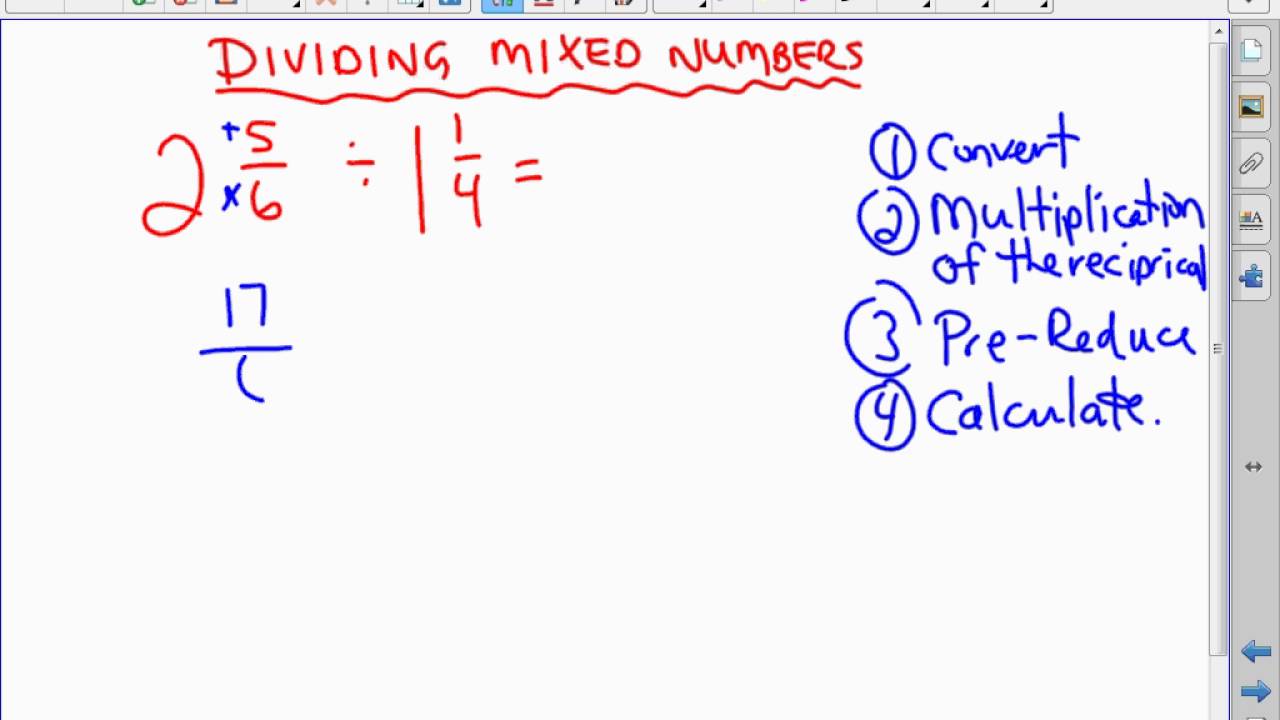 DIVIDING MIXED NUMBERS
2 +5/×6 ÷ 1 1/4 =
17/(
① Convert
② Multiplication
of the reciprical
③ Pre-Reduce
④ Calculate.